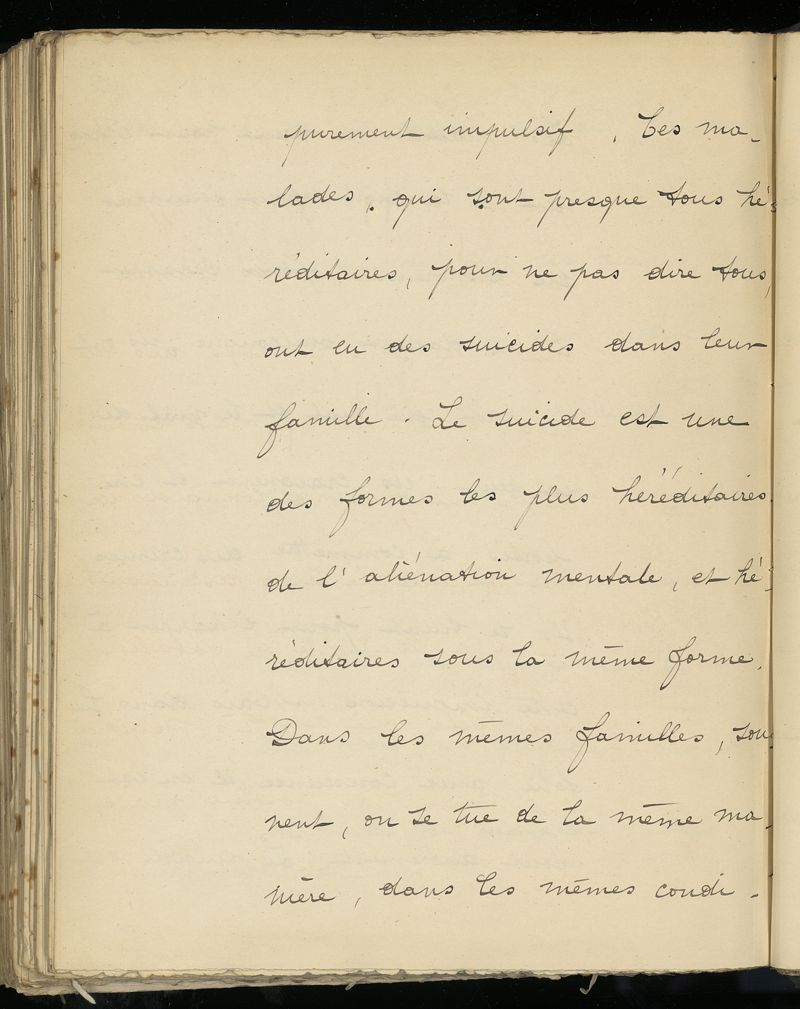 purement impulsif. Ces ma-
lades, qui sont presque tous hé-
réditaires, pour ne pas dire tous,
ont eu des suicides dans leur
famille. Le suicide est une
des formes les plus héréditaires
de l'aliénation mentale, et hé-
réditaires sous la même forme.
Dans les mêmes familles, sou
vent, on se tue de la même ma-
nière, dans les mêmes condi-